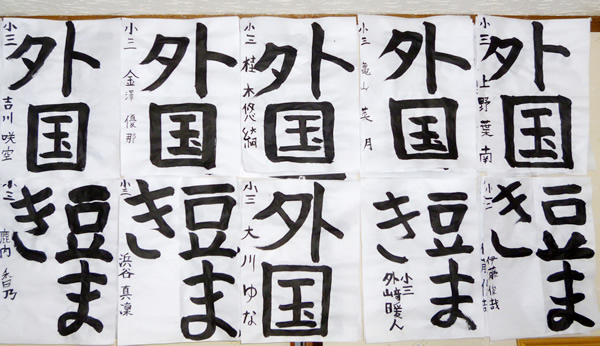 外国
小三 吉川 咲空
外国
小三 金澤 優那
外国
小三 桂木悠
外国
小三 亀山 菜月
外国
小三 上野 葉南
豆ま
き
小三 鹿内 香乃
豆ま
き
小三 浜谷 真凜
外国
小三 大川 ゆな
豆ま
き
小三
外崎暖人
豆ま
き
小三 伊藤